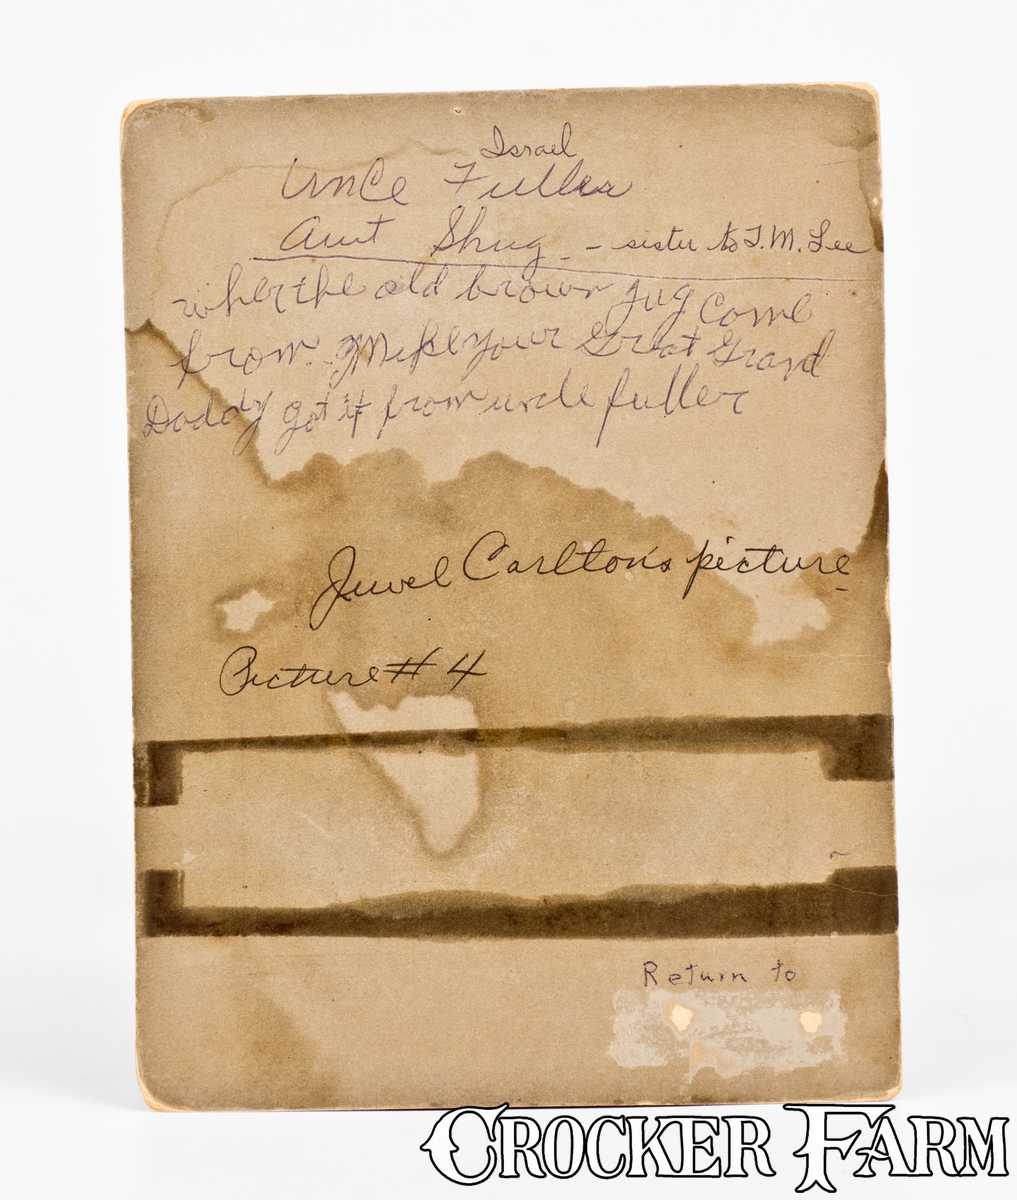 Israel
Uncle Fuller
Aunt Shug - sister to T. M. Lee
wher the old brown jug come
from. your Great Grand
Daddy got it from uncle fuller
Jewel Carlton's picture
Picture # 4
Return to
CROCKER FARM